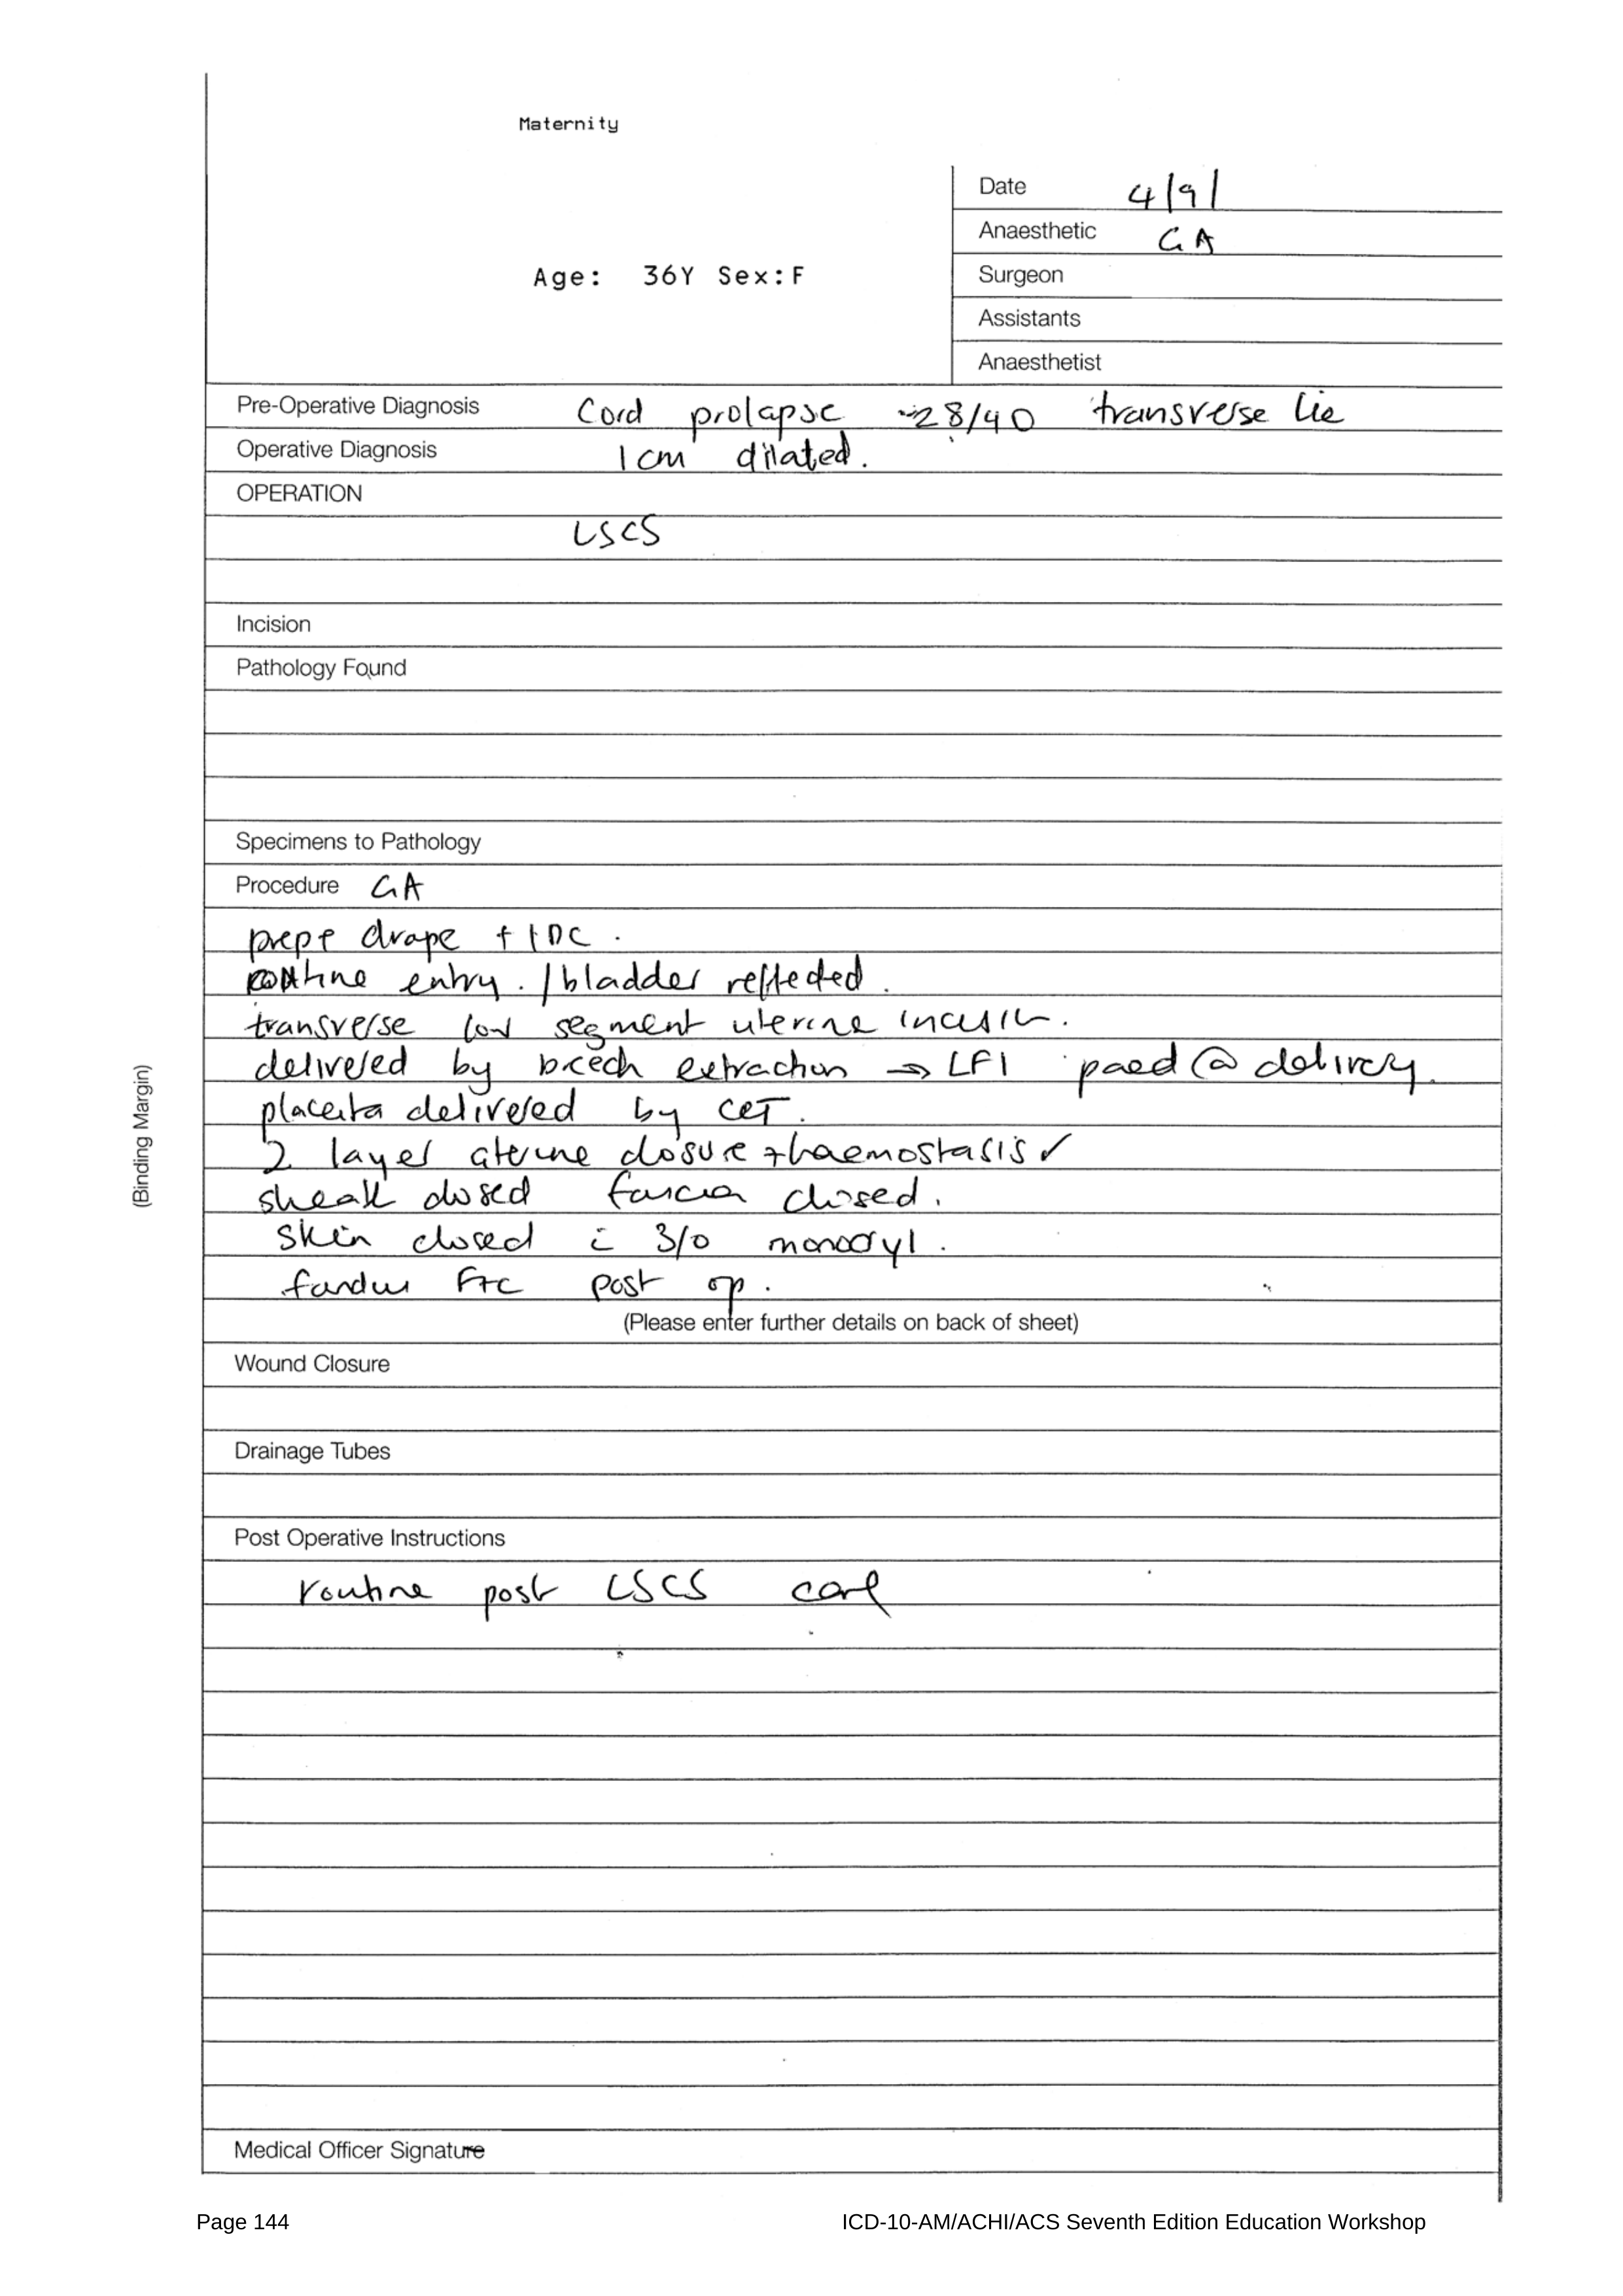 Maternity
Date 4/9/
Anaesthetic GA
Age: 36Y Sex:F
Surgeon
Assistants
Anaesthetist
Pre-Operative Diagnosis Cord prolapse ~28/40 transverse lie
Operative Diagnosis 1cm dilated.
OPERATION
LSCS
Incision
Pathology Found
Specimens to Pathology
Procedure GA
prep + drape + IDC.
routine entry. / bladder reflected.
transverse low segment uterine incision.
delivered by breech extraction → LFI paed @ delivery.
placenta delivered by CCT.
2 layer uterine closure + haemostasis ✓
sheath closed fascia closed.
skin closed c̄ 3/0 monocryl.
fundus F+C post op.
(Please enter further details on back of sheet)
Wound Closure
Drainage Tubes
Post Operative Instructions
routine post LSCS care
Medical Officer Signature
(Binding Margin)
Page 144 ICD-10-AM/ACHI/ACS Seventh Edition Education Workshop